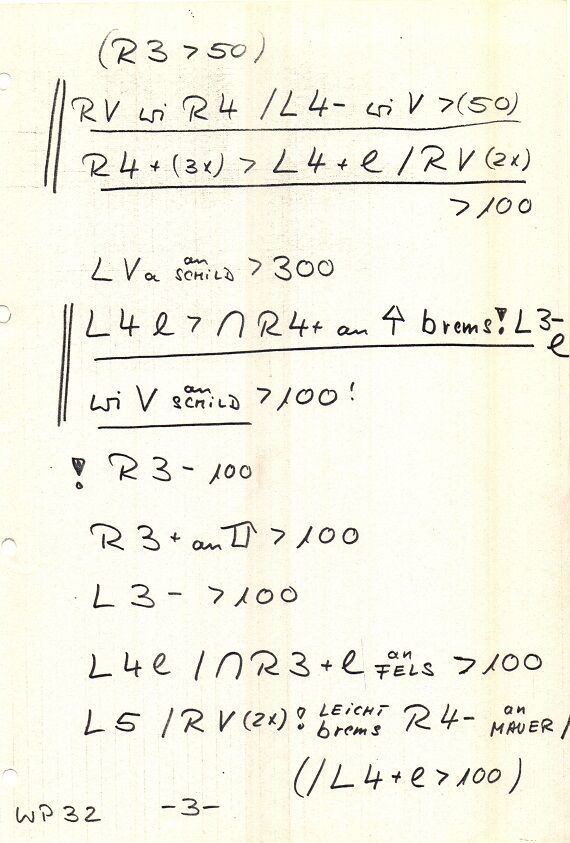 (R3 > 50)
RV wi R4 / L4- wi V > (50)
R4 + (3x) > L4 + e / RV (2x)
> 100
LVa an SCHILD > 300
L4 e > ∩ R4+ an brems! L3-
e
wi V an SCHILD > 100!
! R3 - 100
R3 + an > 100
L 3 - > 100
L4e / ∩ R3 + e an FELS > 100
L5 / RV (2x) ! LEICHT brems R4- an MAUER /
(/ L4 + e > 100)
WP 32 -3-